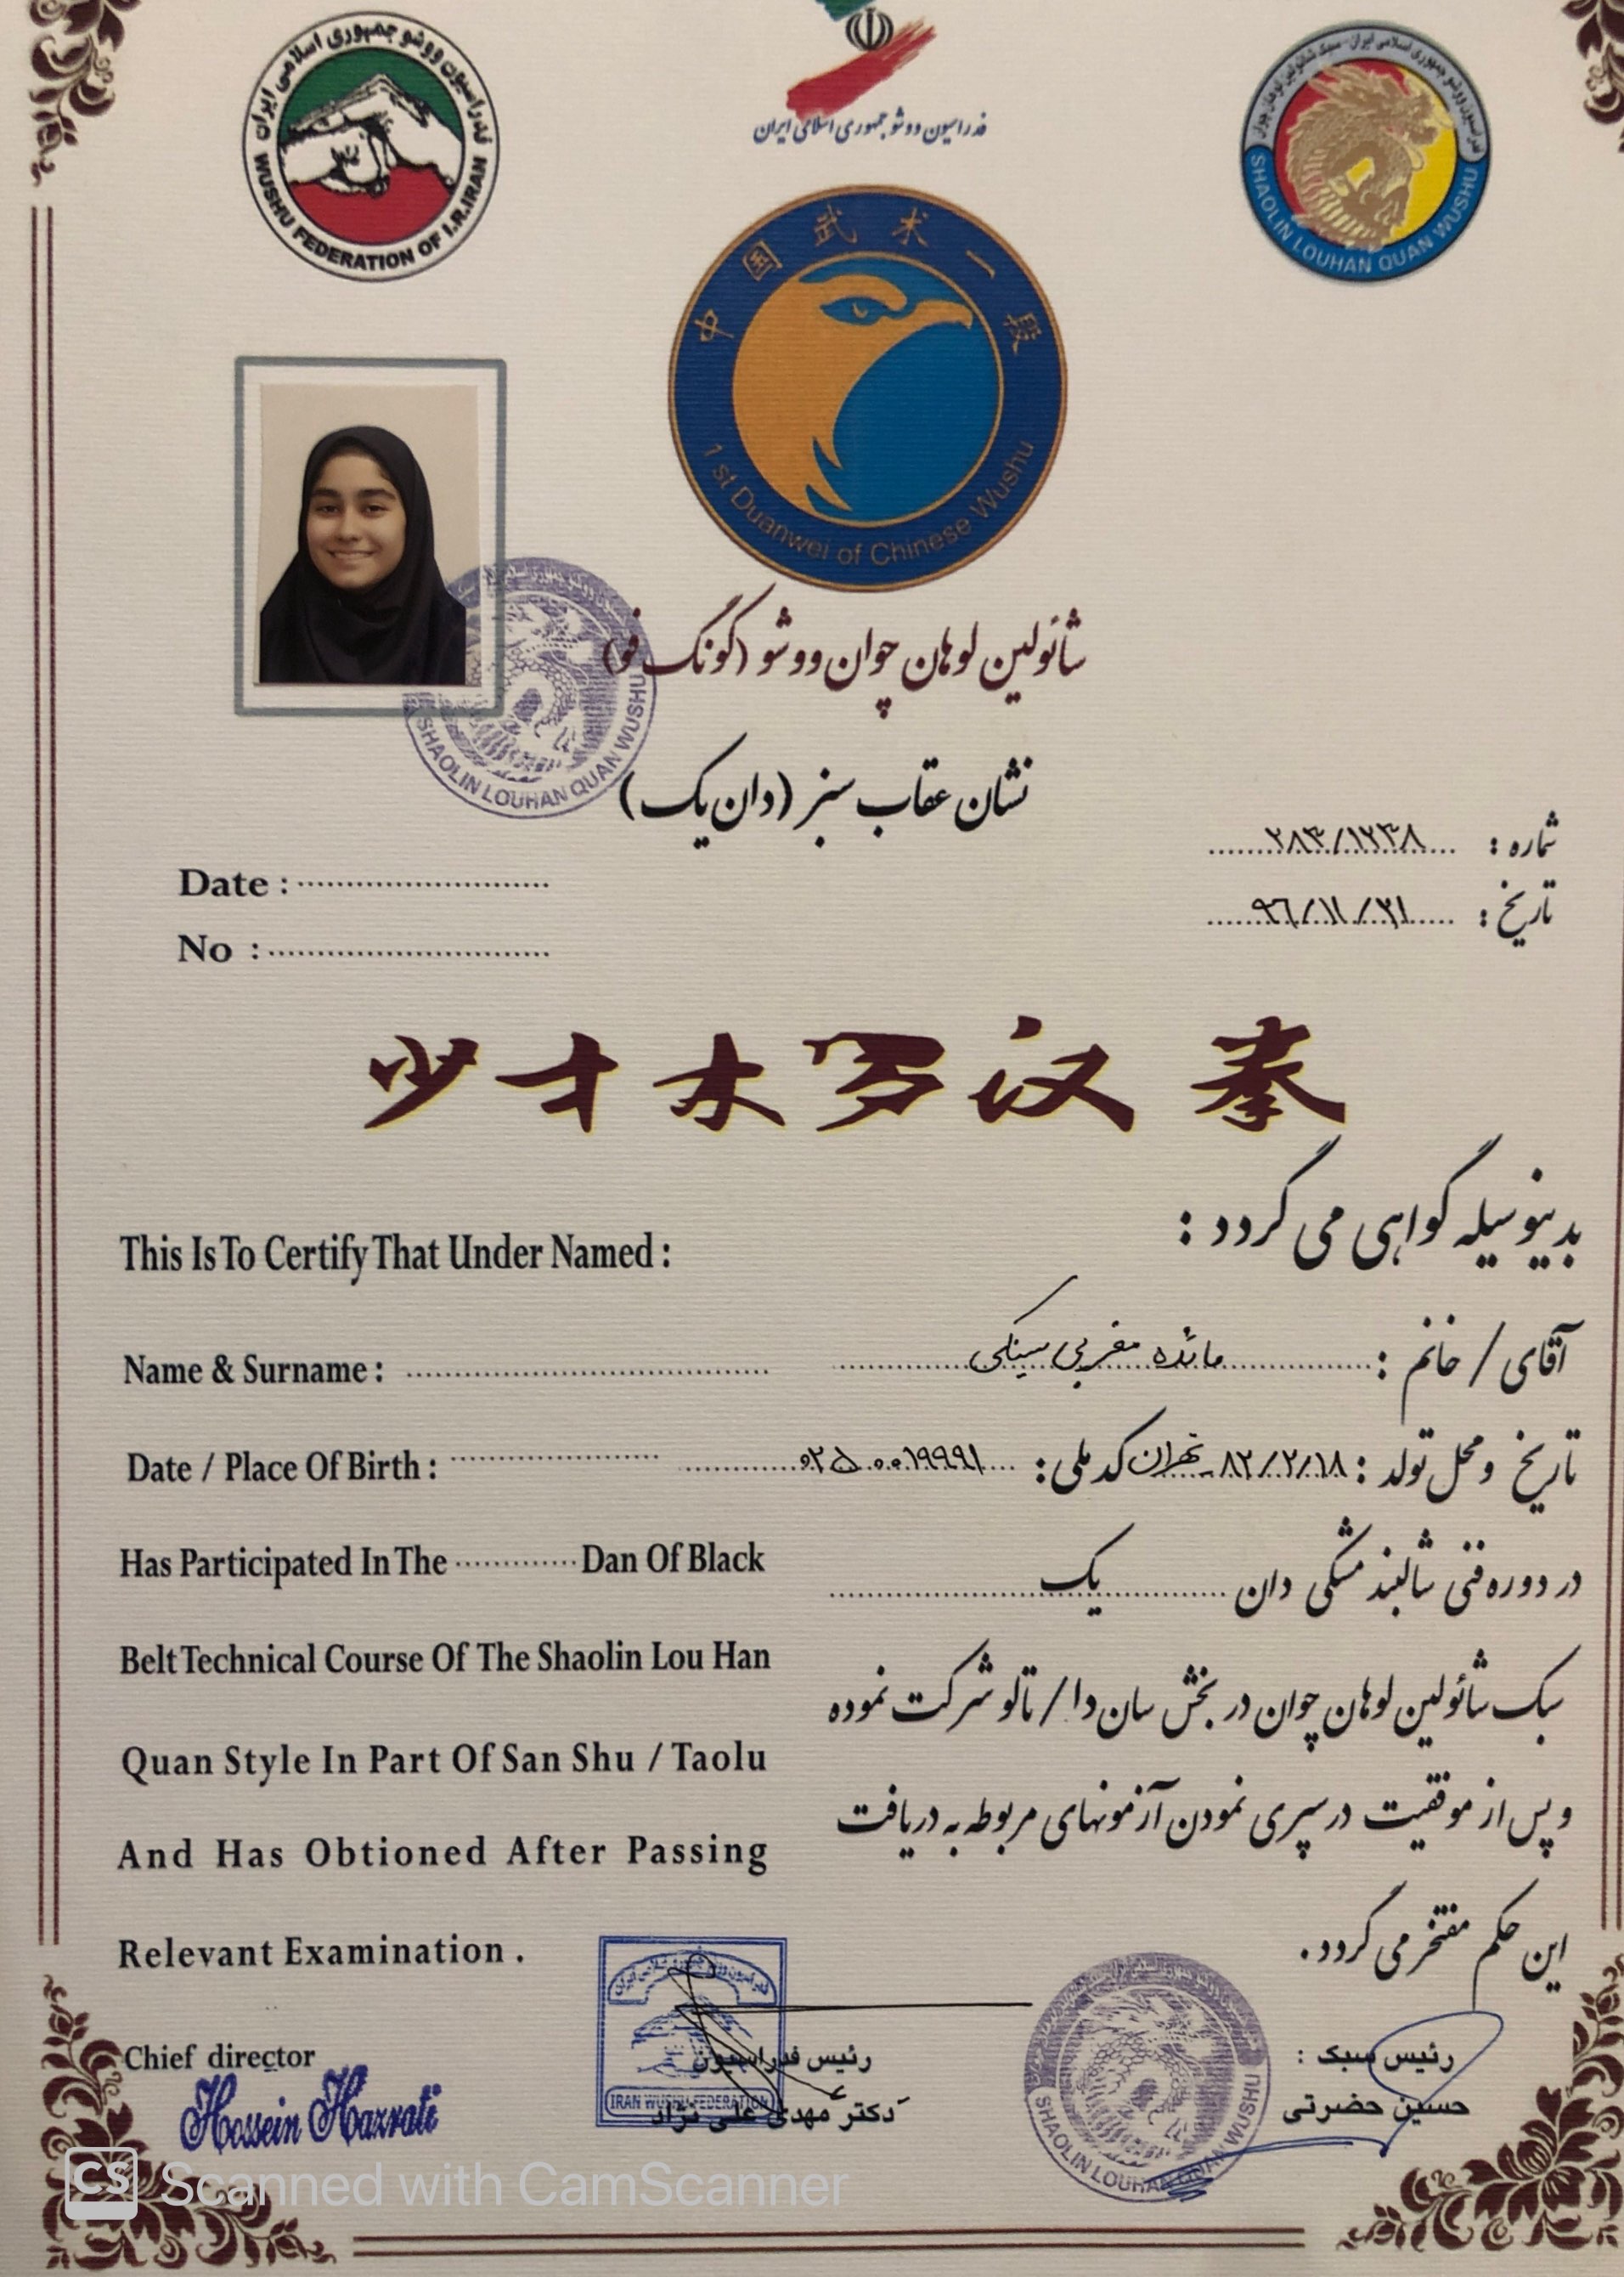 فدراسیون ووشو جمهوری اسلامی ایران
WUSHU FEDERATION OF I.R.IRAN
فدراسیون ووشو جمهوری اسلامی ایران
فدراسیون ووشو جمهوری اسلامی ایران - سبک شائولین لوهان چوان
SHAOLIN LOUHAN QUAN WUSHU
中国武术一段
1 st Duanwei of Chinese Wushu
شائولین لوهان چوان ووشو (کونگ فو)
SHAOLIN LOUHAN QUAN WUSHU
نشان عقاب سبز (دان یک)
شماره : ۲۸۳/۱۲۳۸
Date :
تاریخ : ۹۶/۱۱/۲۱
No :
少才木罗汉拳
بدینوسیله گواهی می گردد :
This Is To Certify That Under Named :
آقای / خانم : مائده مغربی سینکی
Name & Surname :
تاریخ و محل تولد : ۸۲/۲/۱۸ - تهران کد ملی : ۰۲۵۰۰۱۹۹۹۱
Date / Place Of Birth :
در دوره فنی شالبند مشکی دان یک
Has Participated In The Dan Of Black
سبک شائولین لوهان چوان در بخش سان دا / تالو شرکت نموده
Belt Technical Course Of The Shaolin Lou Han
و پس از موفقیت در سپری نمودن آزمونهای مربوطه به دریافت
Quan Style In Part Of San Shu / Taolu
And Has Obtioned After Passing
این حکم مفتخر می گردد .
Relevant Examination .
رئیس سبک :
حسین حضرتی
رئیس فدراسیون
دکتر مهدی علی نژاد
IRAN WUSHU FEDERATION
SHAOLIN LOUHAN QUAN WUSHU
Chief director
Hossein Hazrati
CS Scanned with CamScanner